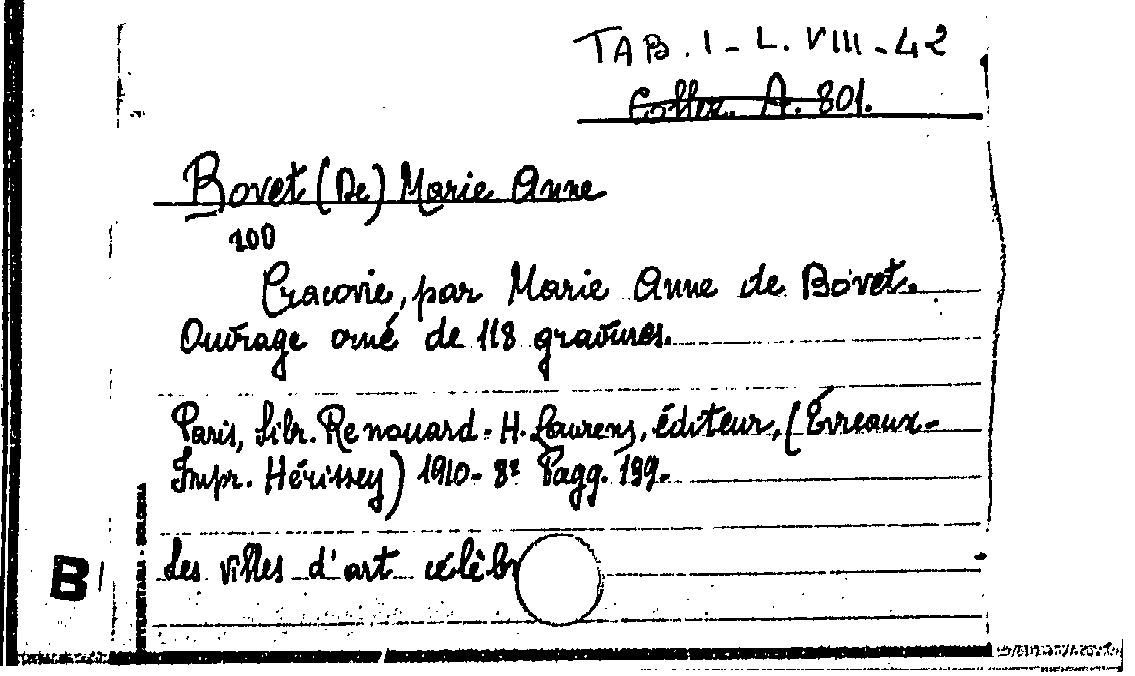 TAB. I - L. VIII - 42
Collez. A. 801.
Bovet (De) Marie Anne
100
Cracovie, par Marie Anne de Bovet.
Ouvrage orné de 118 gravures.
Paris, Libr. Renouard - H. Laurens, éditeur, (Évreaux-
Impr. Hérissey) 1910 - 8º Pagg. 199.
Les villes d'art célèb
B